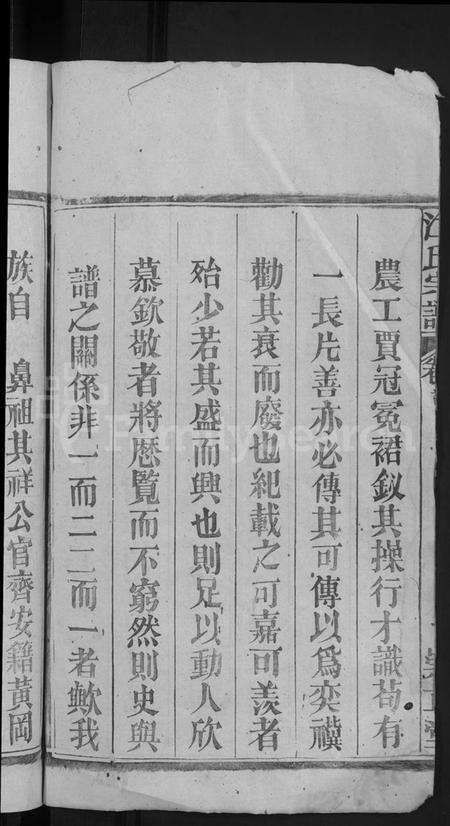 江氏宗譜
農工賈冠冕裙釵其操行才識苟有
一長片善亦必傳其可傳以為奕禩
勸其衰而廢也紀載之可嘉可羡者
殆少若其盛而興也則足以動人欣
慕欽敬者將歷覧而不窮然則史與
譜之關係非一而二二而一者歟我
族自 鼻祖其祥公官齊安籍黃岡